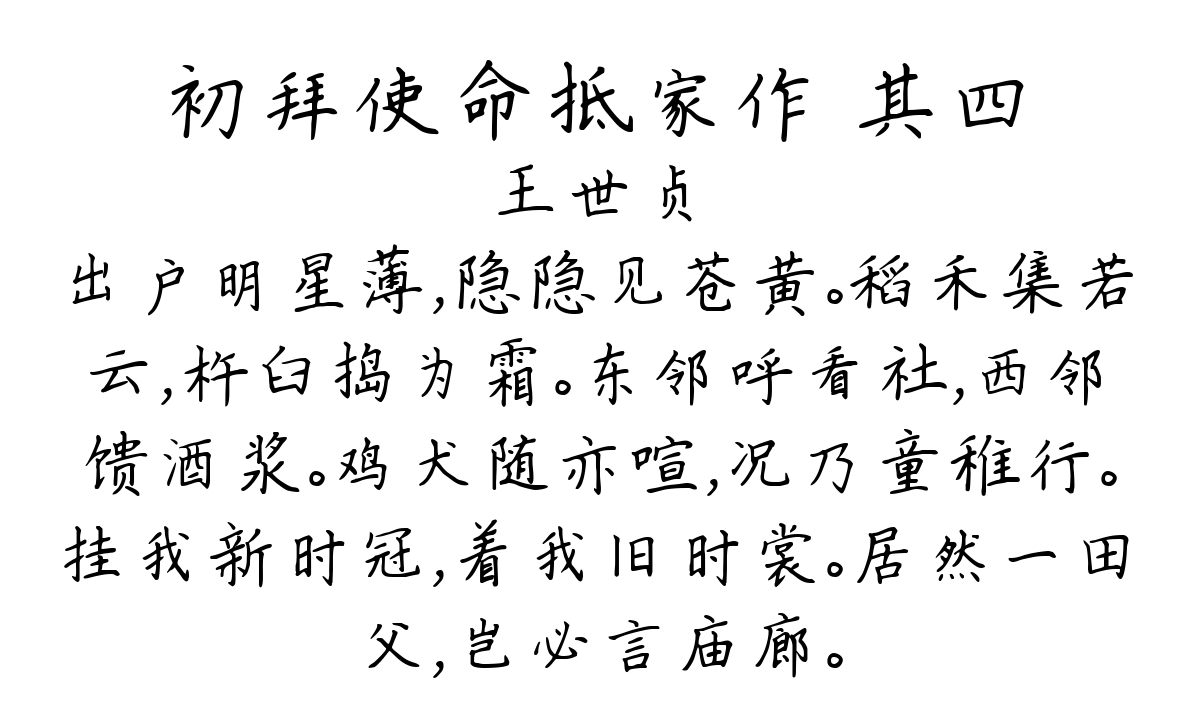 初拜使命抵家作 其四
王世贞
出户明星薄,隐隐见苍黄。稻禾集若
云,杵臼捣为霜。东邻呼看社,西邻
馈酒浆。鸡犬随亦喧,况乃童稚行。
挂我新时冠,着我旧时裳。居然一田
父,岂必言庙廊。